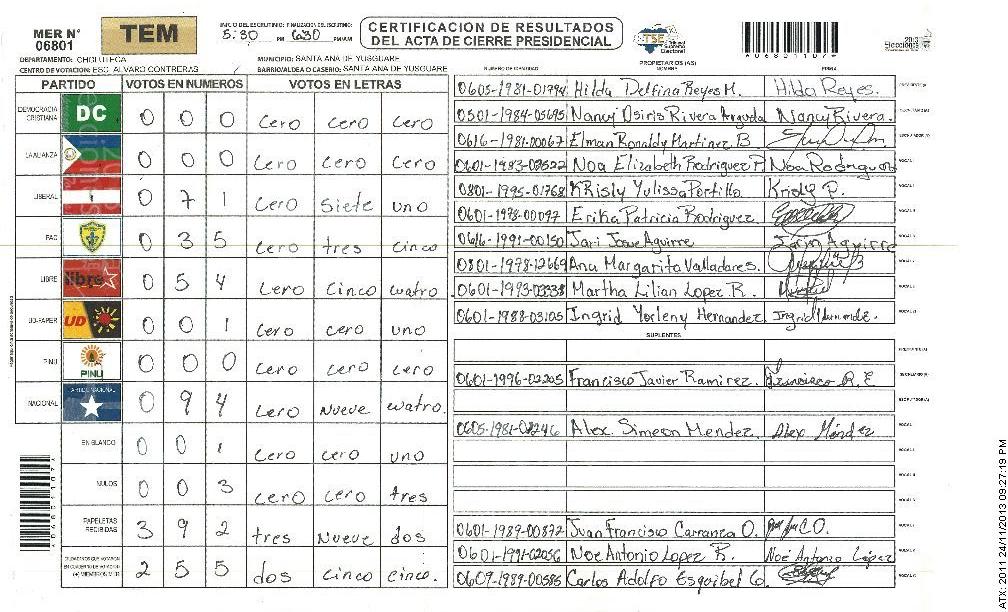 MER N° 06801
TEM
INICIO DEL ESCRUTINIO: FINALIZACION DEL ESCRUTINIO:
5:30 PM 6:30 PM/AM
CERTIFICACION DE RESULTADOS
DEL ACTA DE CIERRE PRESIDENCIAL
TSE Tribunal Supremo Electoral
2013 Elecciones
DEPARTAMENTO: CHOLUTECA
MUNICIPIO: SANTA ANA DE YUSGUARE
CENTRO DE VOTACION: ESC. ALVARO CONTRERAS
BARRIO/ALDEA O CASERIO: SANTA ANA DE YUSGUARE
PROPIETARIOS (AS)
NUMERO DE IDENTIDAD NOMBRE FIRMA
PARTIDO VOTOS EN NUMEROS VOTOS EN LETRAS
DEMOCRACIA CRISTIANA DC 0 0 0 cero cero cero
LA ALIANZA 0 0 0 cero cero cero
LIBERAL 0 7 1 cero siete uno
PAC 0 3 5 cero tres cinco
LIBRE libre 0 5 4 cero cinco cuatro
UD-FAPER UD 0 0 1 cero cero uno
PINU PINU 0 0 0 cero cero cero
NACIONAL PARTIDO NACIONAL 0 9 4 cero nueve cuatro.
EN BLANCO 0 0 1 cero cero uno
NULOS 0 0 3 cero cero tres
PAPELETAS RECIBIDAS 3 9 2 tres nueve dos
CIUDADANOS QUE VOTARON EN CUADERNO DE VOTACION (+) MIEMBROS MER 2 5 5 dos cinco cinco.
0605-1981-01794 Hilda Delfina Reyes M. Hilda Reyes.
0501-1984-05695 Nancy Osiris Rivera Nancy Rivera.
0616-1981-00067 Elman Ronaldy Martinez B.
0601-1983-02622 Noa Elizabeth Rodriguez P. Noa Rodriguez
0801-1995-01768 Kristy Yulissa Portillo Kristy P.
0601-1978-00097 Erika Patricia Rodriguez
0616-1991-00150 Jari Josue Aguirre Jari Aguirre
0801-1978-12669 Ana Margarita Valladares.
0601-1993-03338 Martha Lilian Lopez R.
0601-1988-03105 Ingrid Yorleny Hernandez Ingrid Hernandez.
SUPLENTES
0601-1996-02205 Francisco Javier Ramirez. Francisco R. E
0605-1981-01246 Alex Simeon Mendez. Alex Méndez
0601-1989-00872 Juan Francisco Carranza O.
0601-1991-02056 Noe Antonio Lopez R. Noé Antonio López
0609-1989-00586 Carlos Adolfo Esquibel G.
ATX 2011 24/11/2013 09:27:19 PM